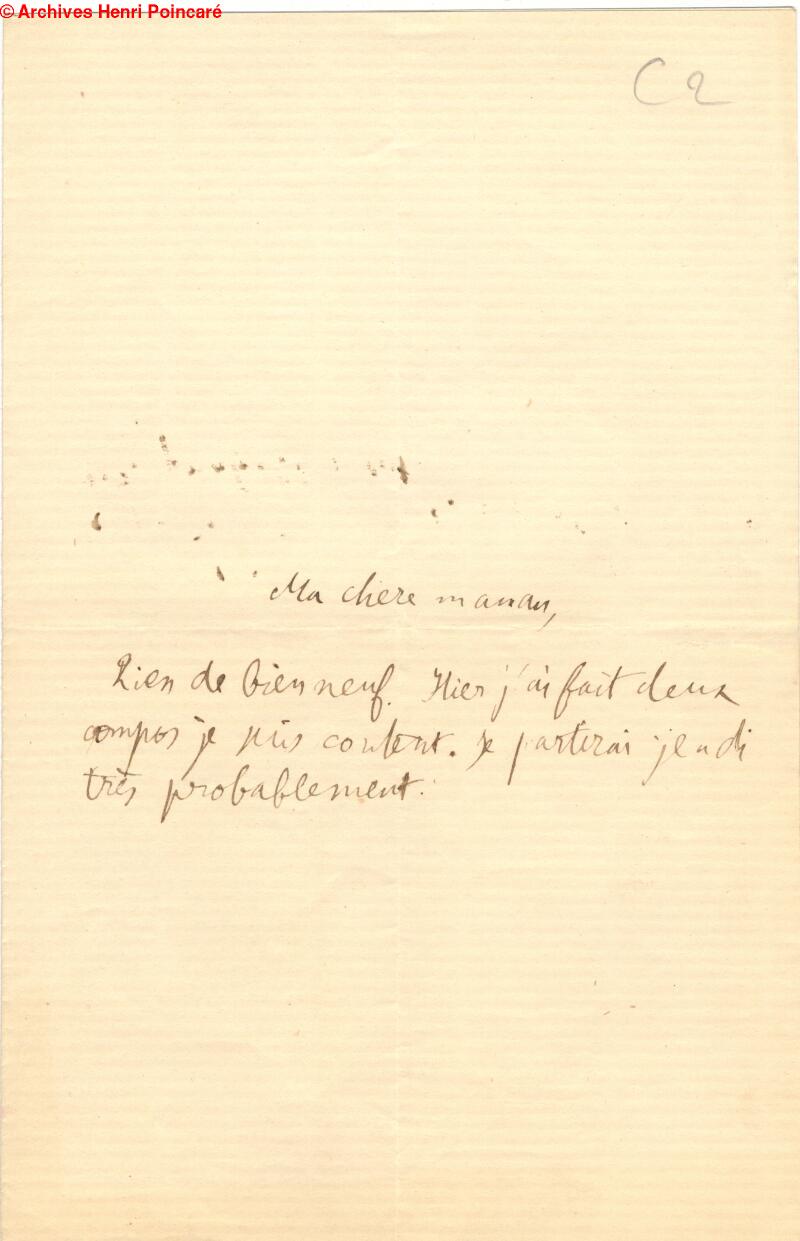 © Archives Henri Poincaré
C2
Ma chère maman,
Rien de bien neuf. Hier j'ai fait deux
compos je suis content. Je partirai jeudi
très probablement.